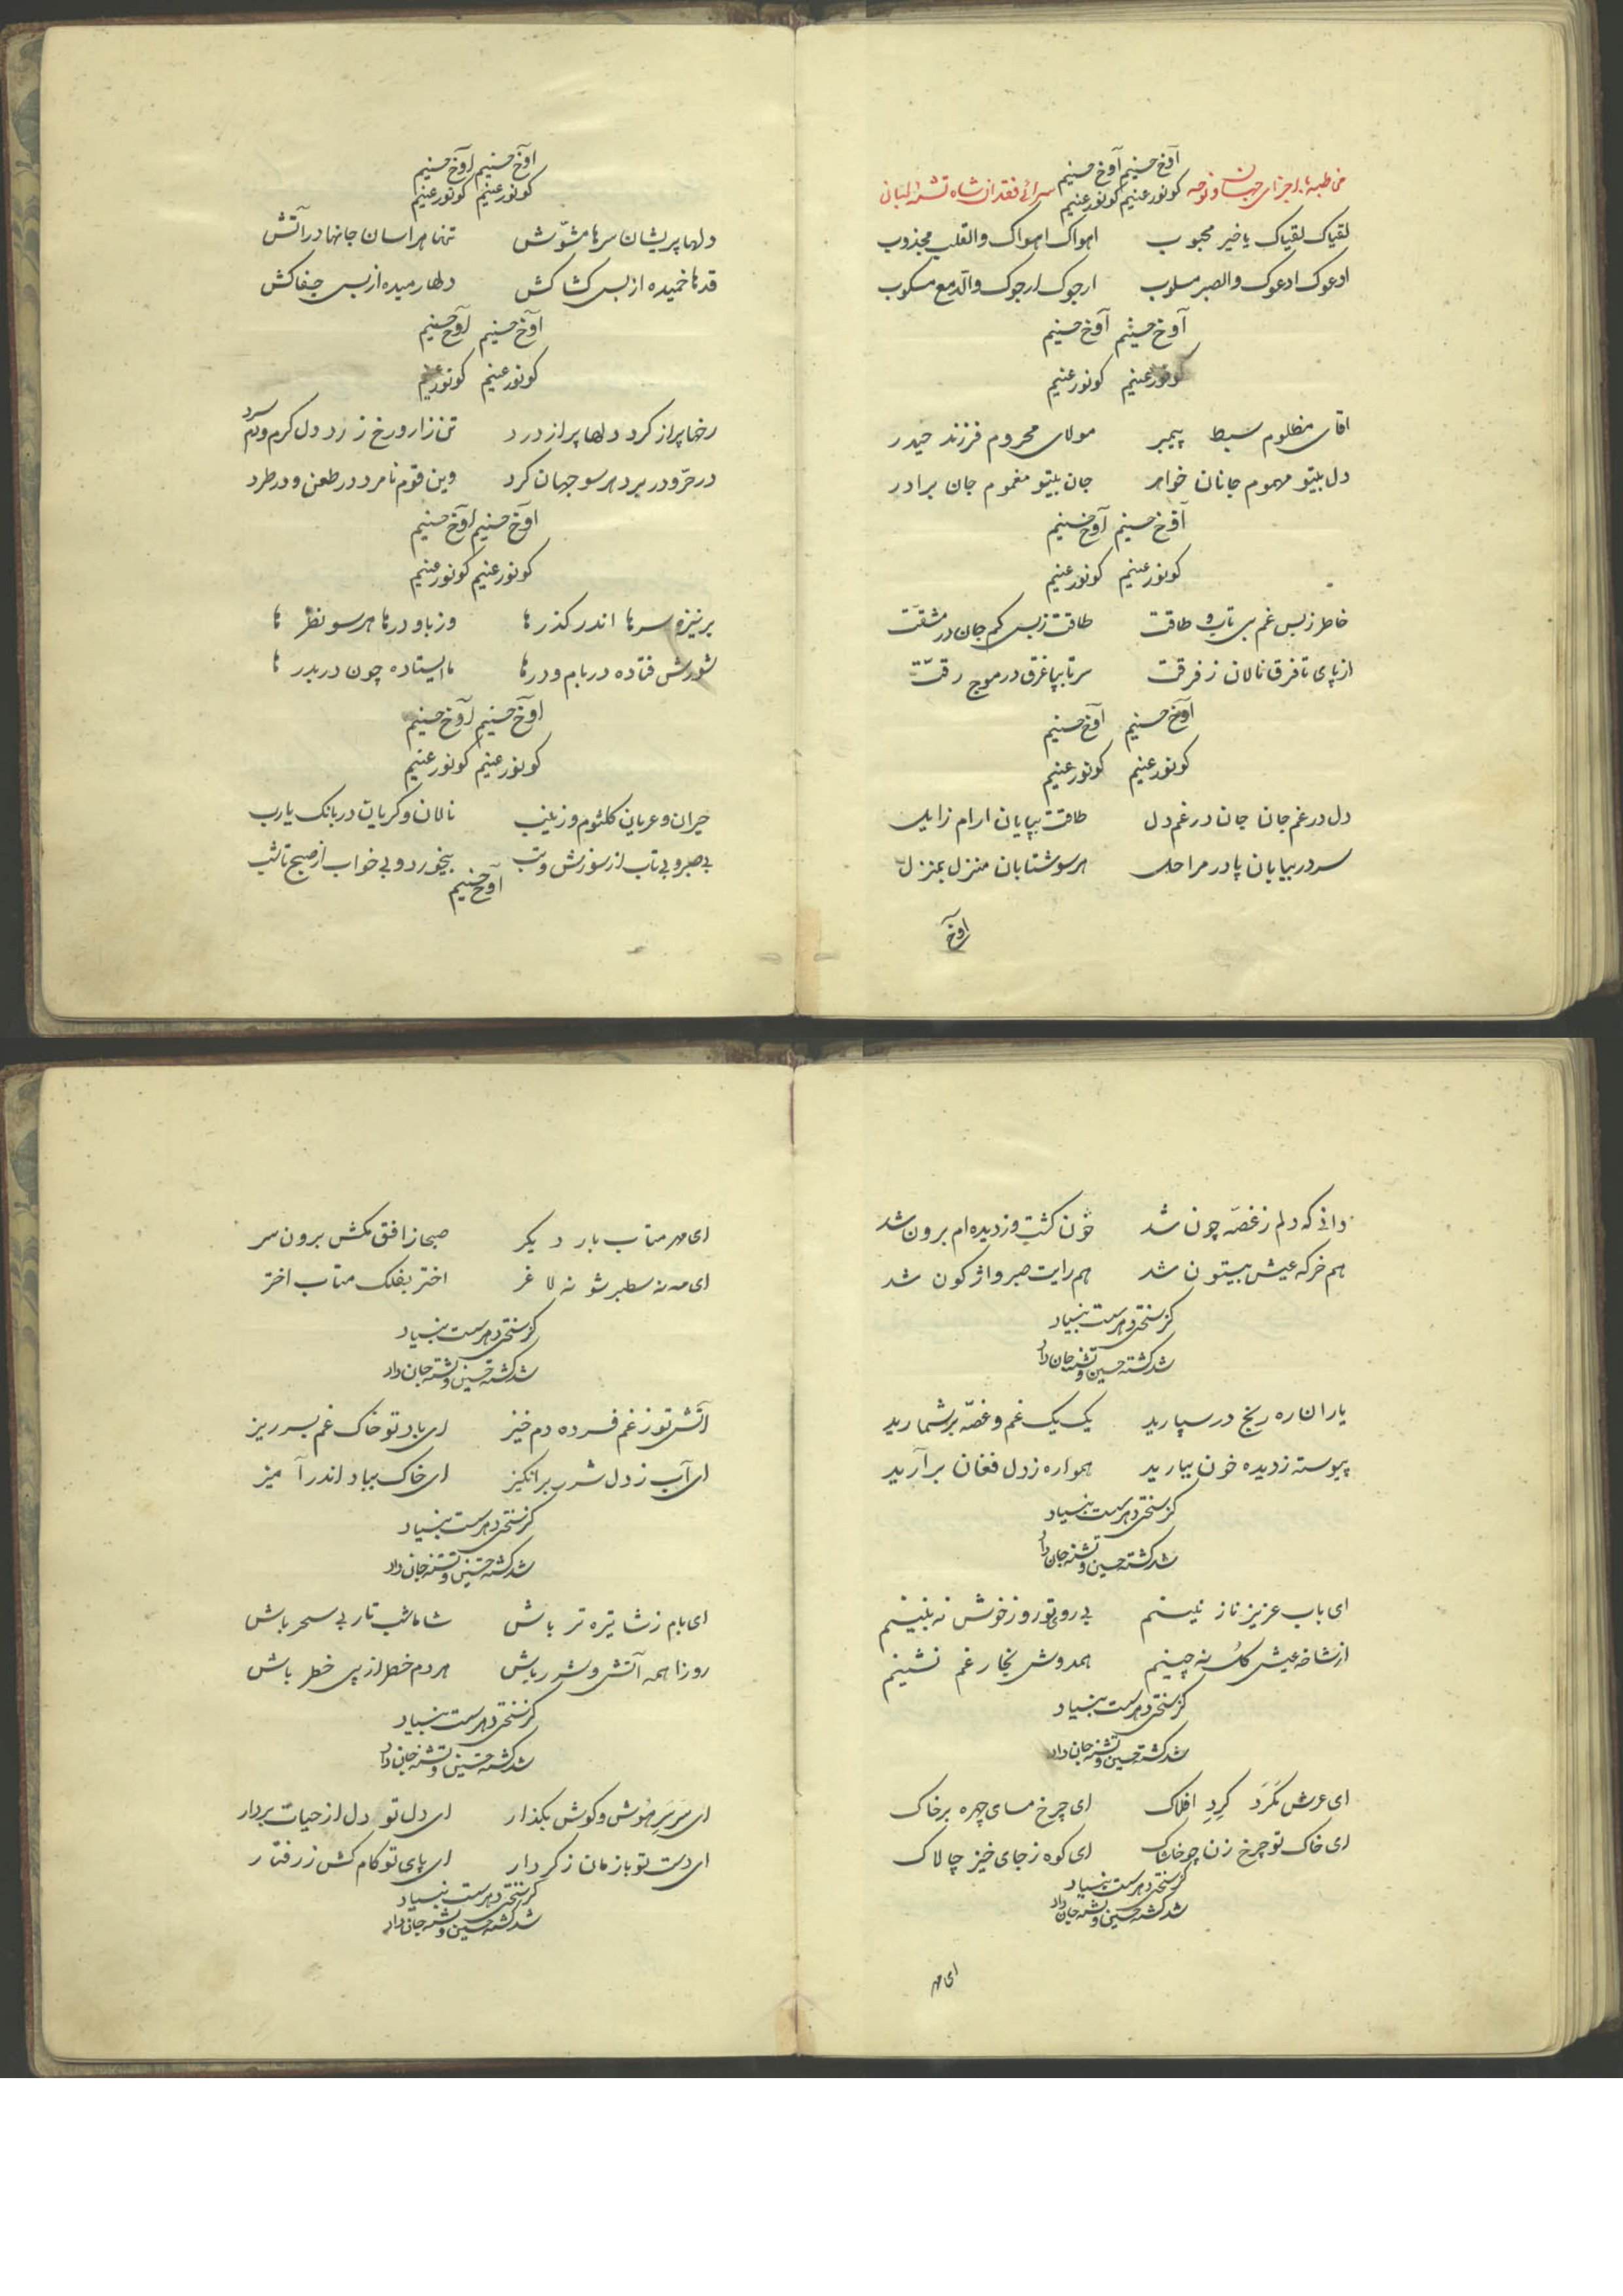 آوخ حسنیم آوخ حسنیم
مخاطبه با اجزای جهان و نوحه کو نور عینیم کو نور عینیم سرائی فقدان شاه تشنه لبان
لقیاک لقیاک یا خیر محبوب اهواک اهواک والقلب مجذوب
ادعوک ادعوک والصبر مسلوب ارجوک ارجوک والدّمع مسکوب
آوخ حسنیم آوخ حسنیم
کو نور عینیم کو نور عینیم
اقای مظلوم سبط پیمبر مولای محروم فرزند حیدر
دل بیتو مهموم جانان خواهر جان بیتو مغموم جان برادر
آوخ حسنیم آوخ حسنیم
کو نور عینیم کو نور عینیم
خاطر ز بس غم بی تاب و طاقت طاقت ز بس کم جان در مشقّت
از پای تا فرق نالان ز فرقت سر تا بپا غرق در موج رقّت
آوخ حسنیم آوخ حسنیم
کو نور عینیم کو نور عینیم
دل در غم جان جان در غم دل طاقت بپایان ارام زایل
سر در بیابان پا در مراحل هر سو شتابان منزل بمنزل
آوخ
آوخ حسنیم آوخ حسنیم
کو نور عینیم کو نور عینیم
دلها پریشان سرها مشوّش تنها هراسان جانها در آتش
قدها خمیده از بس کشاکش دلها رمیده از بس جفاکش
آوخ حسنیم آوخ حسنیم
کو نور عینیم کو نور عینیم
رخها پر از کرد دلها پر از درد تن زار و رخ زرد دل کرم و دم سرد
در حرّ و در برد هر سو جهان کرد وین قوم نامرد در طعن و در طرد
آوخ حسنیم آوخ حسنیم
کو نور عینیم کو نور عینیم
بر نیزه سرها اندر کذرها وز بام و درها هر سو نظرها
شورش فتاده در بام و درها ما ایستاده چون دربدرها
آوخ حسنیم آوخ حسنیم
کو نور عینیم کو نور عینیم
حیران و عریان کلثوم و زینب نالان و کریان در بانک یارب
بی صبر و بی تاب از سوزش و تب بیخورد و بی خواب از صبح تا شب
آوخ حسنیم
دانی که دلم ز غصّه چون شد خون کشت و ز دیده ام برون شد
هم خرکه عیش بیستون شد هم رایت صبر واژکون شد
کز سختی دهر سست بنیاد
شد کشته حسین و تشنه جان داد
یاران ره رنج در سپارید یک یک غم و غصّه بر شمارید
پیوسته ز دیده خون ببارید همواره ز دل فغان برآرید
کز سختی دهر سست بنیاد
شد کشته حسین و تشنه جان داد
ای باب عزیز نازنینم بی روی تو روز خوش نه بینم
از شاخه عیش کل نه چینم همدوش بخار غم نشینم
کز سختی دهر سست بنیاد
شد کشته حسین و تشنه جان داد
ای عرش مَکَرد کِردِ افلاک ای چرخ مسای چهره بر خاک
ای خاک تو چرخ زن چو خاشاک ای کوه ز جای خیز چالاک
کز سختی دهر سست بنیاد
شد کشته حسین و تشنه جان داد
ای مهر
ای مهر متاب بار دیکر صبحا ز افق مکش برون سر
ای مه نه سطبر شو نه لاغر اختر بفلک متاب اختر
کز سختی دهر سست بنیاد
شد کشته حسین و تشنه جان داد
آتش تو ز غم فسرده دم خیز ای باد تو خاک غم بسر ریز
ای آب ز دل شرر برانکیز ای خاک بباد اندر آمیز
کز سختی دهر سست بنیاد
شد کشته حسین و تشنه جان داد
ای بام ز شا تیره تر باش شاما شب تار بی سحر باش
روزا همه آتش و شرر باش هر دم خطر از پی خطر باش
کز سختی دهر سست بنیاد
شد کشته حسین و تشنه جان داد
ای سَر سَرِ هوش و کوش بکذار ای دل تو دل از حیات بردار
ای دست تو باز مان ز کردار ای پای تو کام کش ز رفتار
کز سختی دهر سست بنیاد
شد کشته حسین و تشنه جان داد